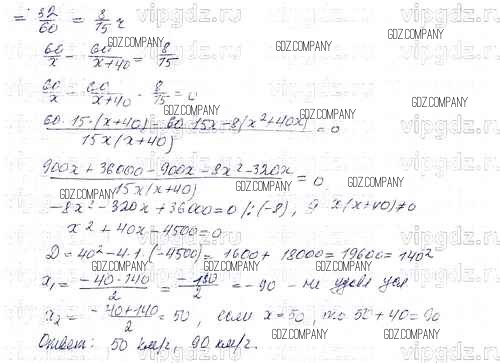 = 32/60 = 8/15 ч
60/x - 60/(x+40) = 8/15
60/x - 60/(x+40) - 8/15 = 0
(60·15·(x+40) - 60·15x - 8(x²+40x))/(15x(x+40)) = 0
(900x + 36000 - 900x - 8x² - 320x)/(15x(x+40)) = 0
-8x² - 320x + 36000 = 0 |:(-8), x(x+40)≠0
x² + 40x - 4500 = 0
D = 40² - 4·1·(-4500) = 1600 + 18000 = 19600 = 140²
x₁ = (-40-140)/2 = -180/2 = -90 - не удов усл
x₂ = (-40+140)/2 = 50, если x=50, то 50+40=90
Ответ: 50 км/ч, 90 км/ч.
vipgdz.ru
GDZ.COMPANY